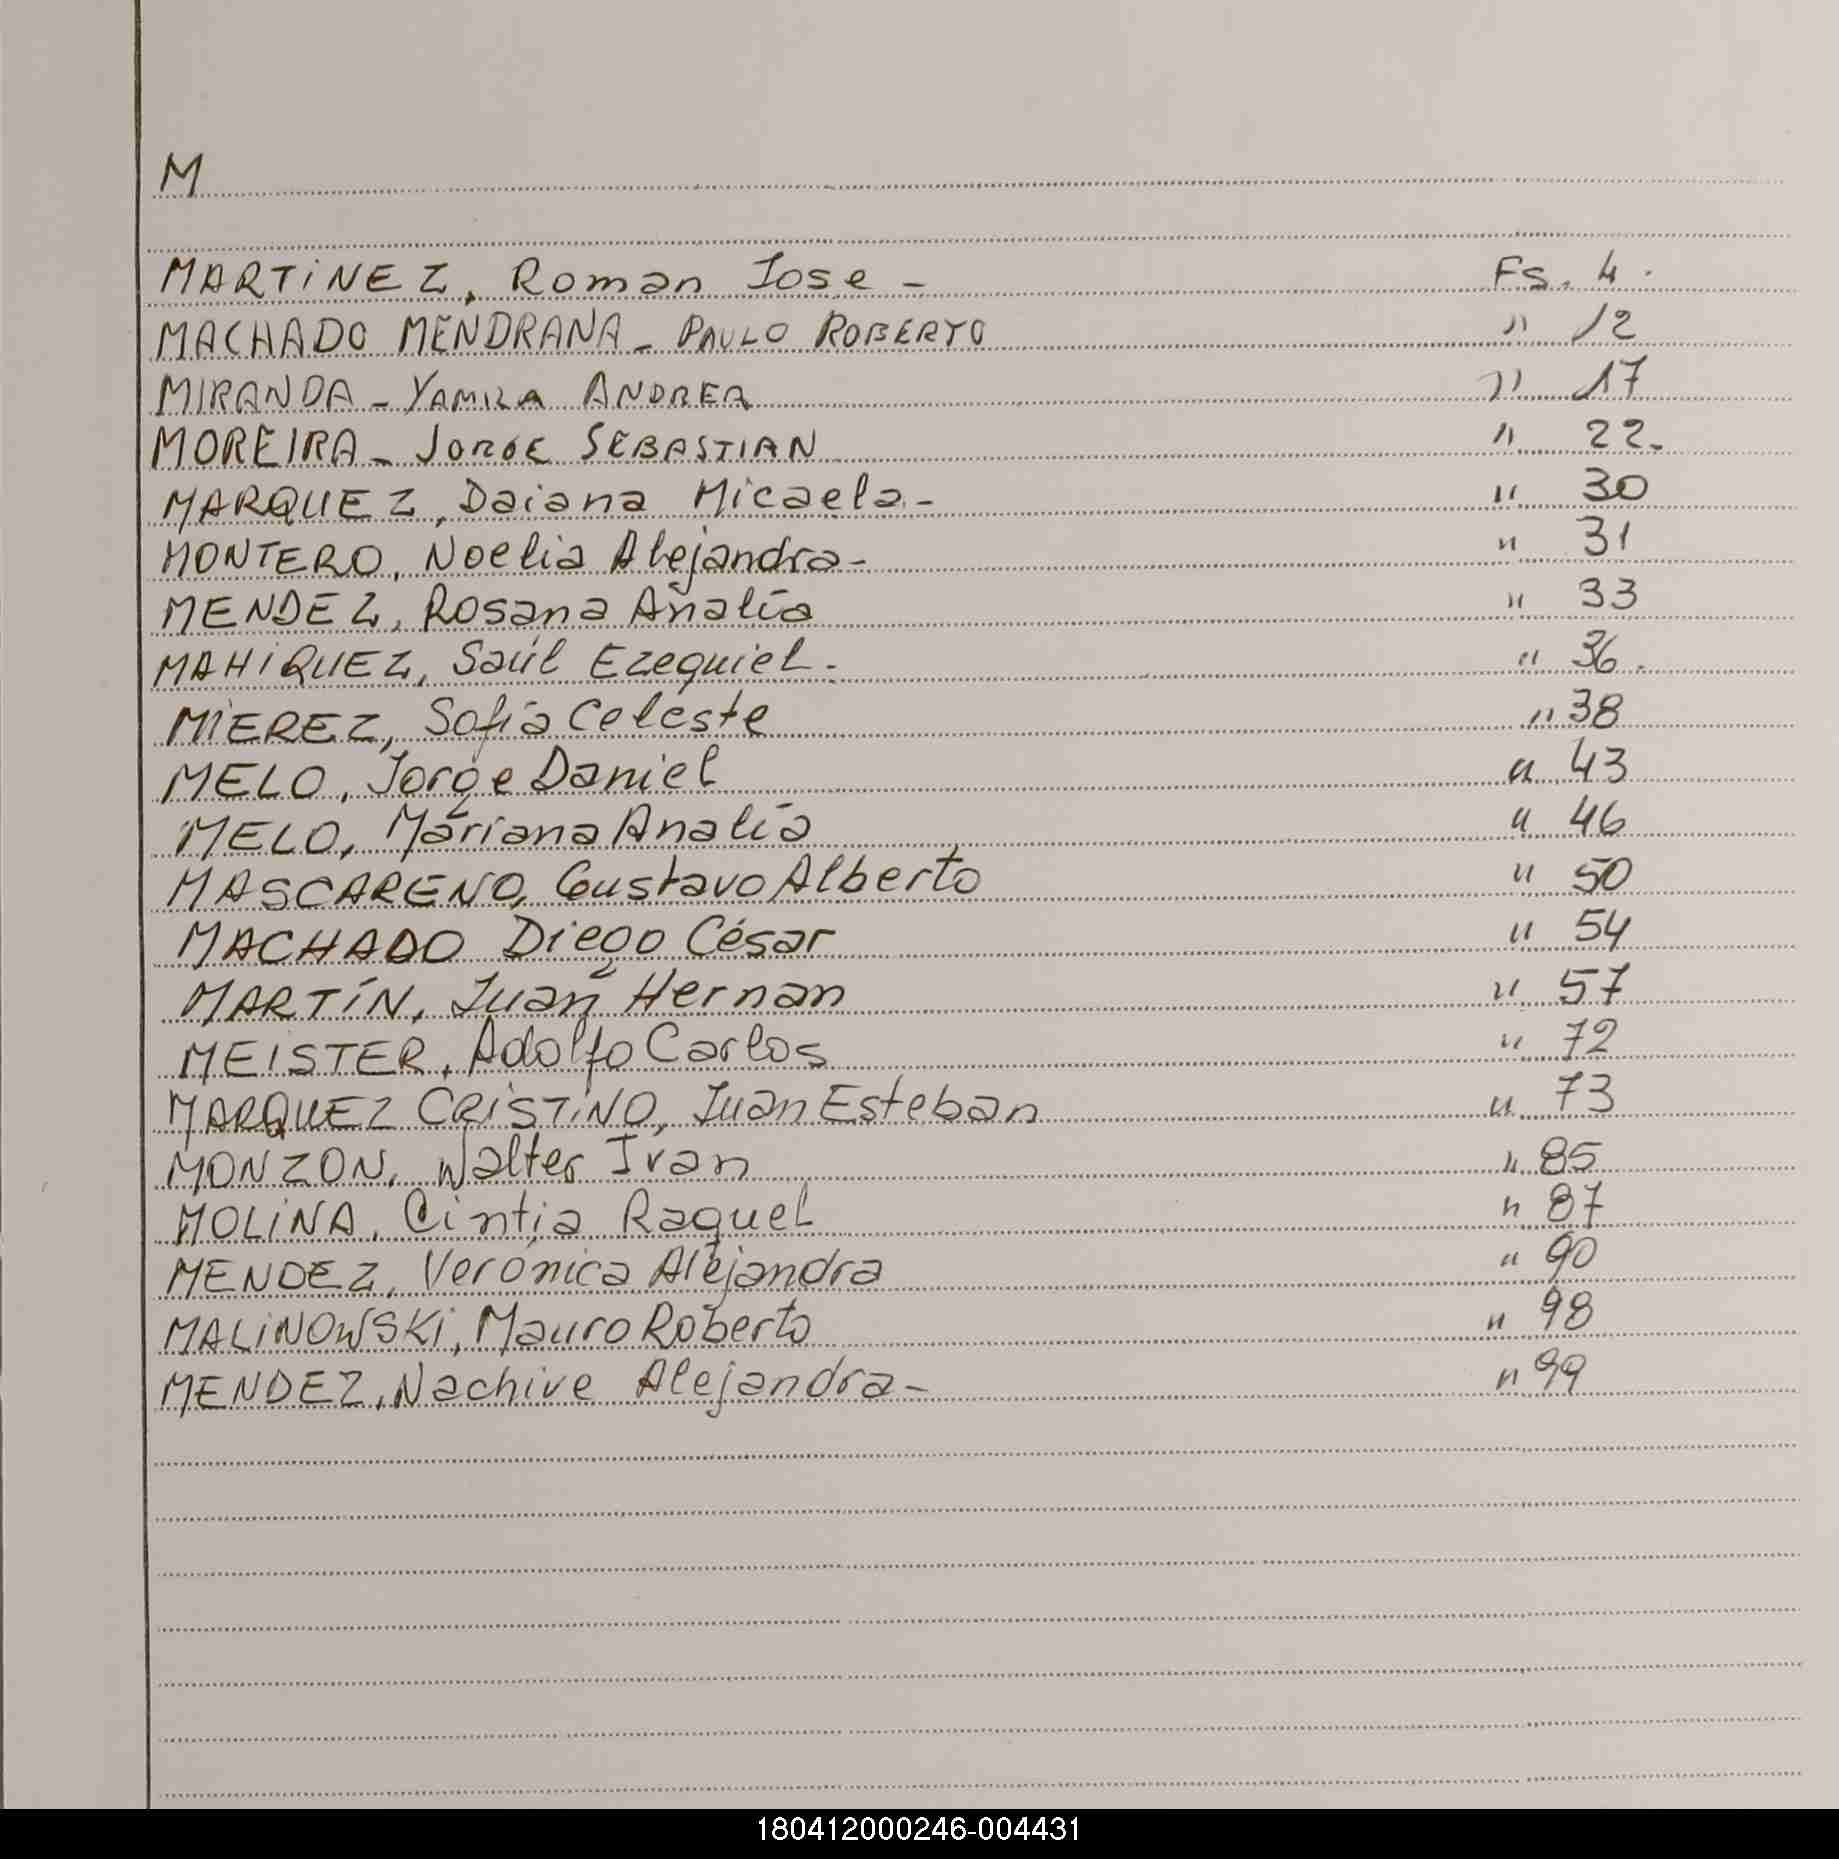 M
MARTiNEZ, Roman Jose - Fs. 4.
MACHADO MENDRANA - PAULO ROBERTO " 12
MIRANDA - YAMILA ANDREA " 17
MOREIRA - JORGE SEBASTIAN " 22.
MARQUEZ, Daiana Micaela - " 30
MONTERO, Noelia Alejandra - " 31
MENDEZ, Rosana Analía " 33
MAHiQUEZ, Saúl Ezequiel. " 36.
MiEREZ, Sofía Celeste " 38
MELO, Jorge Daniel " 43
MELO, Mariana Analía " 46
MASCARENO, Gustavo Alberto " 50
MACHADO Diego César " 54
MARTÍN, Juan Hernan " 57
MEISTER, Adolfo Carlos " 72
MARQUEZ CRiSTiNO, Juan Esteban " 73
MONZON, Walter Ivan " 85
MOLiNA, Cintia Raquel " 87
MENDEZ, Verónica Alejandra " 90
MALiNOWSKi, Mauro Roberto " 98
MENDEZ, Nachive Alejandra - " 99
180412000246-004431